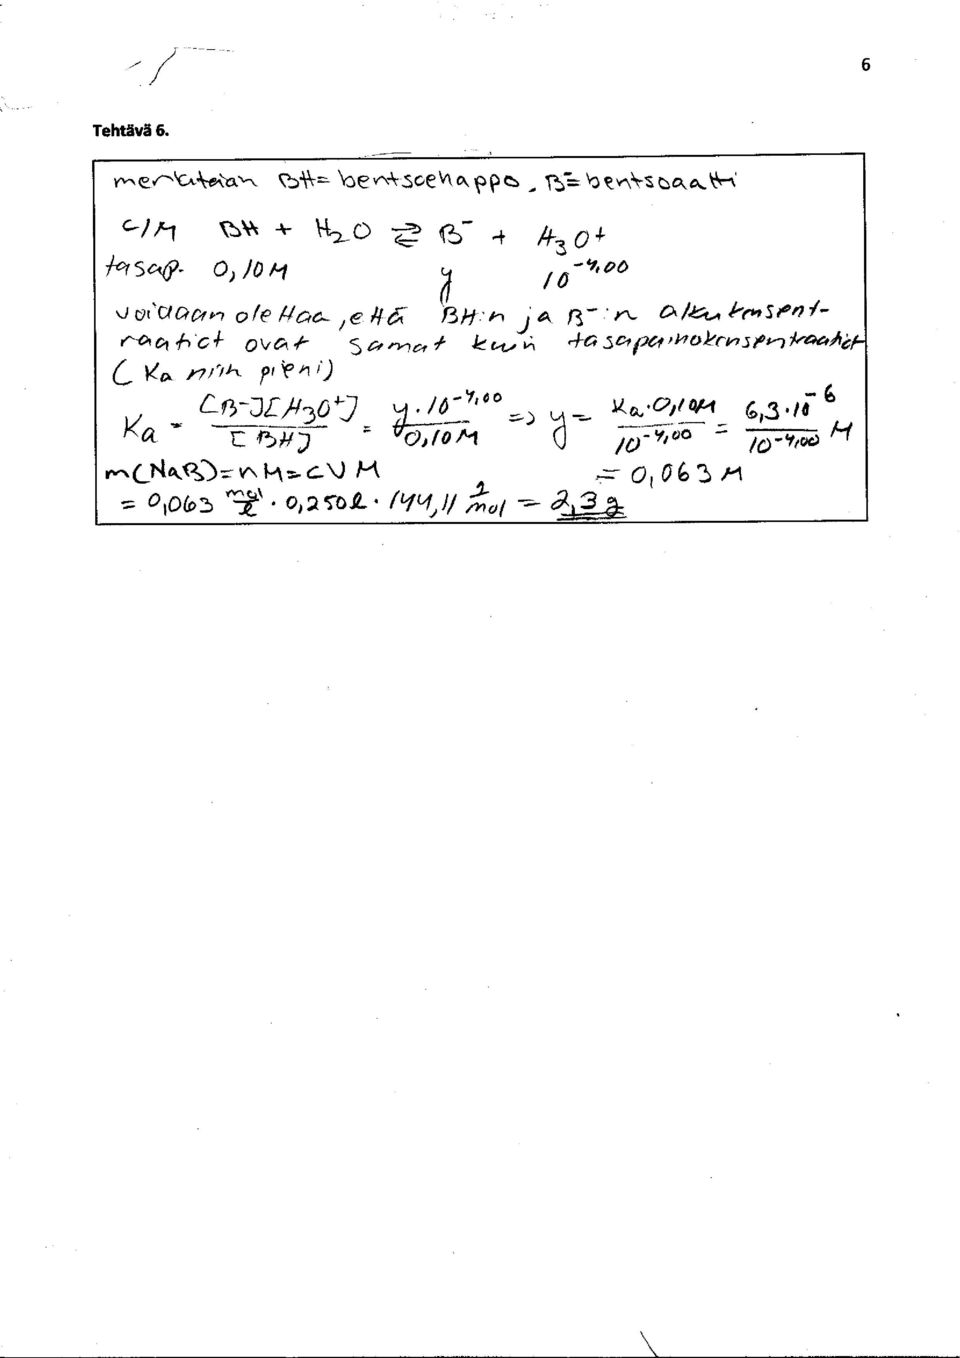 6
Tehtävä 6.
merkitään BH = bentsoehappo, B⁻ = bentsoaatti
c/M BH + H₂O ⇌ B⁻ + H₃O⁺
tasap. 0,10M y 10^-4,00
voidaan olettaa, että BH:n ja B⁻:n alkukonsent-
raatiot ovat samat kuin tasapainokonsentraatiot
(Ka niin pieni)
Ka = [B⁻][H₃O⁺] / [BH] = y·10^-4,00 / 0,10M => y = Ka·0,10M / 10^-4,00 = 6,3·10^-6 / 10^-4,00 M
m(NaB) = nM = cVM = 0,063 M
= 0,063 mol/l · 0,250l · 144,11 g/mol = 2,3 g